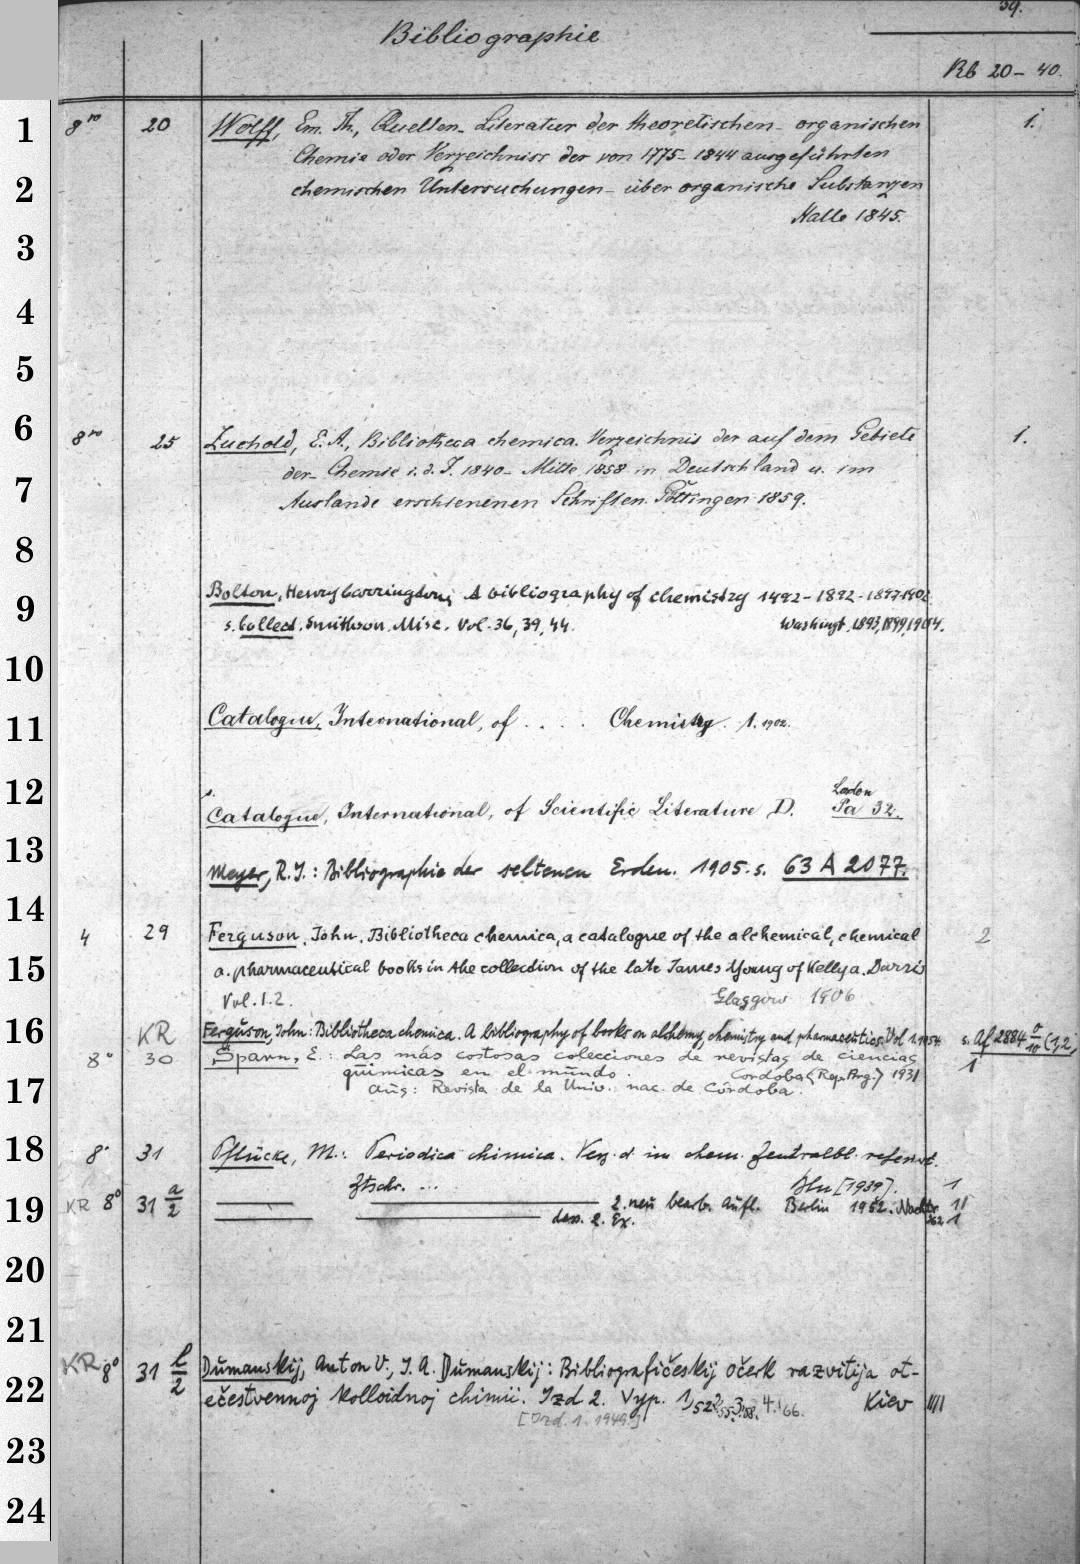 39.
Bibliographie
Rb 20 – 40.
1 8vo 20 Wolff, Em. Th., Quellen-Literatur der theoretischen organischen 1.
Chemie oder Verzeichniss der von 1775-1844 ausgeführten
2 chemischen Untersuchungen über organische Substanzen
Halle 1845.
3
4
5
6 8vo 25 Zuchold, E. A., Bibliotheca chemica. Verzeichnis der auf dem Gebiete 1.
der Chemie i. d. J. 1840 - Mitte 1858 in Deutschland u. im
7 Auslande erschienenen Schriften. Göttingen 1859.
8
9 Bolton, Henry Carrington, A bibliography of chemistry 1492-1892-1897-1902
s. Collect. Smithson. Misc. Vol. 36, 39, 44. Washingt. 1893, 1899, 1904.
10
11 Catalogue, International, of . . . . Chemistry. 1. 1902.
12 London
Catalogue, International, of Scientific Literature D. Pa 32.
13 Meyer, R. J.: Bibliographie der seltenen Erden. 1905. s. 63 A 2077.
14 4 29 Ferguson, John. Bibliotheca chemica, a catalogue of the alchemical, chemical 2
15 a. pharmaceutical books in the collection of the late James Young of Kelly a. Durris
Vol. 1. 2. Glasgow 1906
16 KR Ferguson, John: Bibliotheca chemica. A bibliography of books on alchemy, chemistry and pharmaceutics. Vol 1. 1954 s. Af 2884 (1,2)
8° 30 Spann, E.: Las más costosas colecciones de revistas de ciencias 1
químicas en el mundo. Cordoba (Rep. Arg.) 1931
17 Aus: Revista de la Univ. nac. de Córdoba.
18 8° 31 Pflücke, M.: Periodica chimica. Verz. d. im chem. Zentralbl. referiert.
Ztschr. ... Bln [1939]. 1
19 KR 8° 31 a/2 2. neu bearb. Aufl. Berlin 1952. Nachtr. 11
dass. 2. Ex. 1
20
21
KR 8° 31 l/2 Dumanskij, Anton V., I. A. Dumanskij: Bibliografičeskij očerk razvitija ot-
22 ečestvennoj kolloidnoj chimii. Izd 2. Vyp. 1,52 2,55. 3,58. 4,66. Kiev IIII
[Izd. 1. 1949.]
23
24